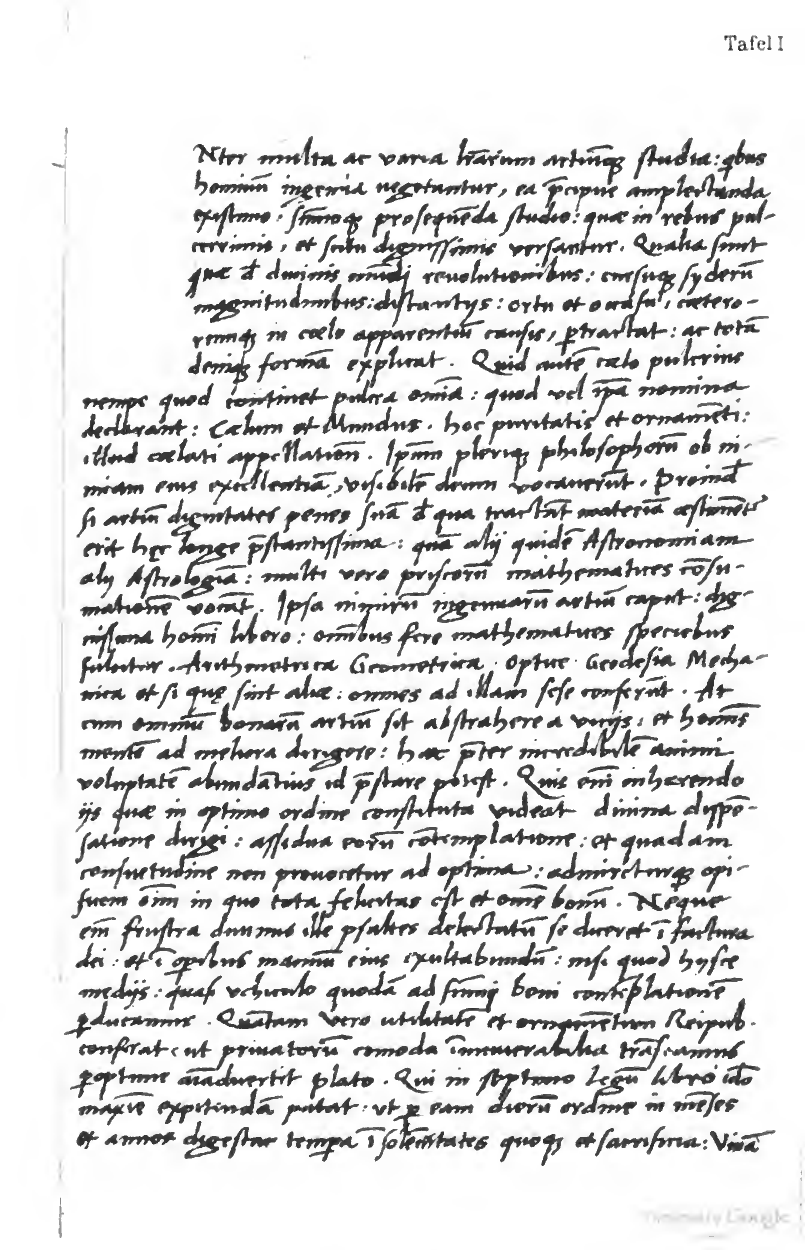 Tafel I
Nter multa ac varia lr̄arum artiūq̨ studia: qbus
hominū ingenia negetantur, ea p̄cipue amplectanda
existimo: sūmoq̨ prosequēda studio: quæ in rebus pul-
cerrimis, et scitu dignissimis versantur. Qualia sunt
quæ đ diuinis mūdi reuolutionibus: cursuq̨ syderū
magnitudinibus: distantijs: ortu et occasu, cætero-
rumq̨ in cœlo apparentiū causis, ꝑtractat: ac totā
deniq̨ formā explicat. Quid autē cælo pulcrius
nempe quod continet pulcra omīa: quod vel ip̄a nomina
declarant: Cælum et Mundus. hoc puritatis et ornamēti:
illud cælati appellatiōn. Ipsūm pleriq̨ philosophorū ob ni-
miam eius excellentiā, visibilē deum vocauerūt. Proinđ
si artiū dignitates penes suā đ qua tractāt materiā æstimētʳ
erit hęc longe p̄stantissima: quā alij quidē Astronomiam
alij Astrologiā: multi vero priscorū mathematices cōsu-
mationē vocāt. Ipsa nimirū ingenuarū artiū caput: dig-
nissima homī libero: omībus fere mathematices speciebus
fulcitur. Arithmetrica Geometrica Optice Geodesia Mecha-
nica et si quę sint aliæ: omnes ad illam sese conferūt. At
cum omniū bonarū artiū sit abstrahere a vicijs: et homīs
mentē ad meliora dirigere: hæc p̄ter incredibilē animi
voluptatē abundātius id p̄stare potest. Quis enī inherendo
ijs quæ in optimo ordine constituta videāt diuina dispē-
satione dirigi: assidua eorū cōtemplatione: et quadam
consuetudine non prouocetur ad optima: admireturq̨ opi-
ficem oīm in quo tota felicitas est et omē bonū. Neque
em̄ frustra diuinus ille psaltes delectatū se diceret ī factura
dei: et ī oꝑibus manuū eius exultabundū: nisi quod hysce
medijs: quasi vehiculo quodā ad sūmi boni contēplationē
ꝑducamur. Quātam vero utilitatē et ornamētum Reipub.
conferat: ut priuatorū comoda īnumerabilia trāseamus
ꝑoptime aīaduertit plato. Qui in septimo legū libro iđo
maxīe expetendā putat: vt ꝑ eam dierū ordine in mēses
et annos digestæ temꝑa ī solēnitates quoq̨ et sacrificia: Viuā